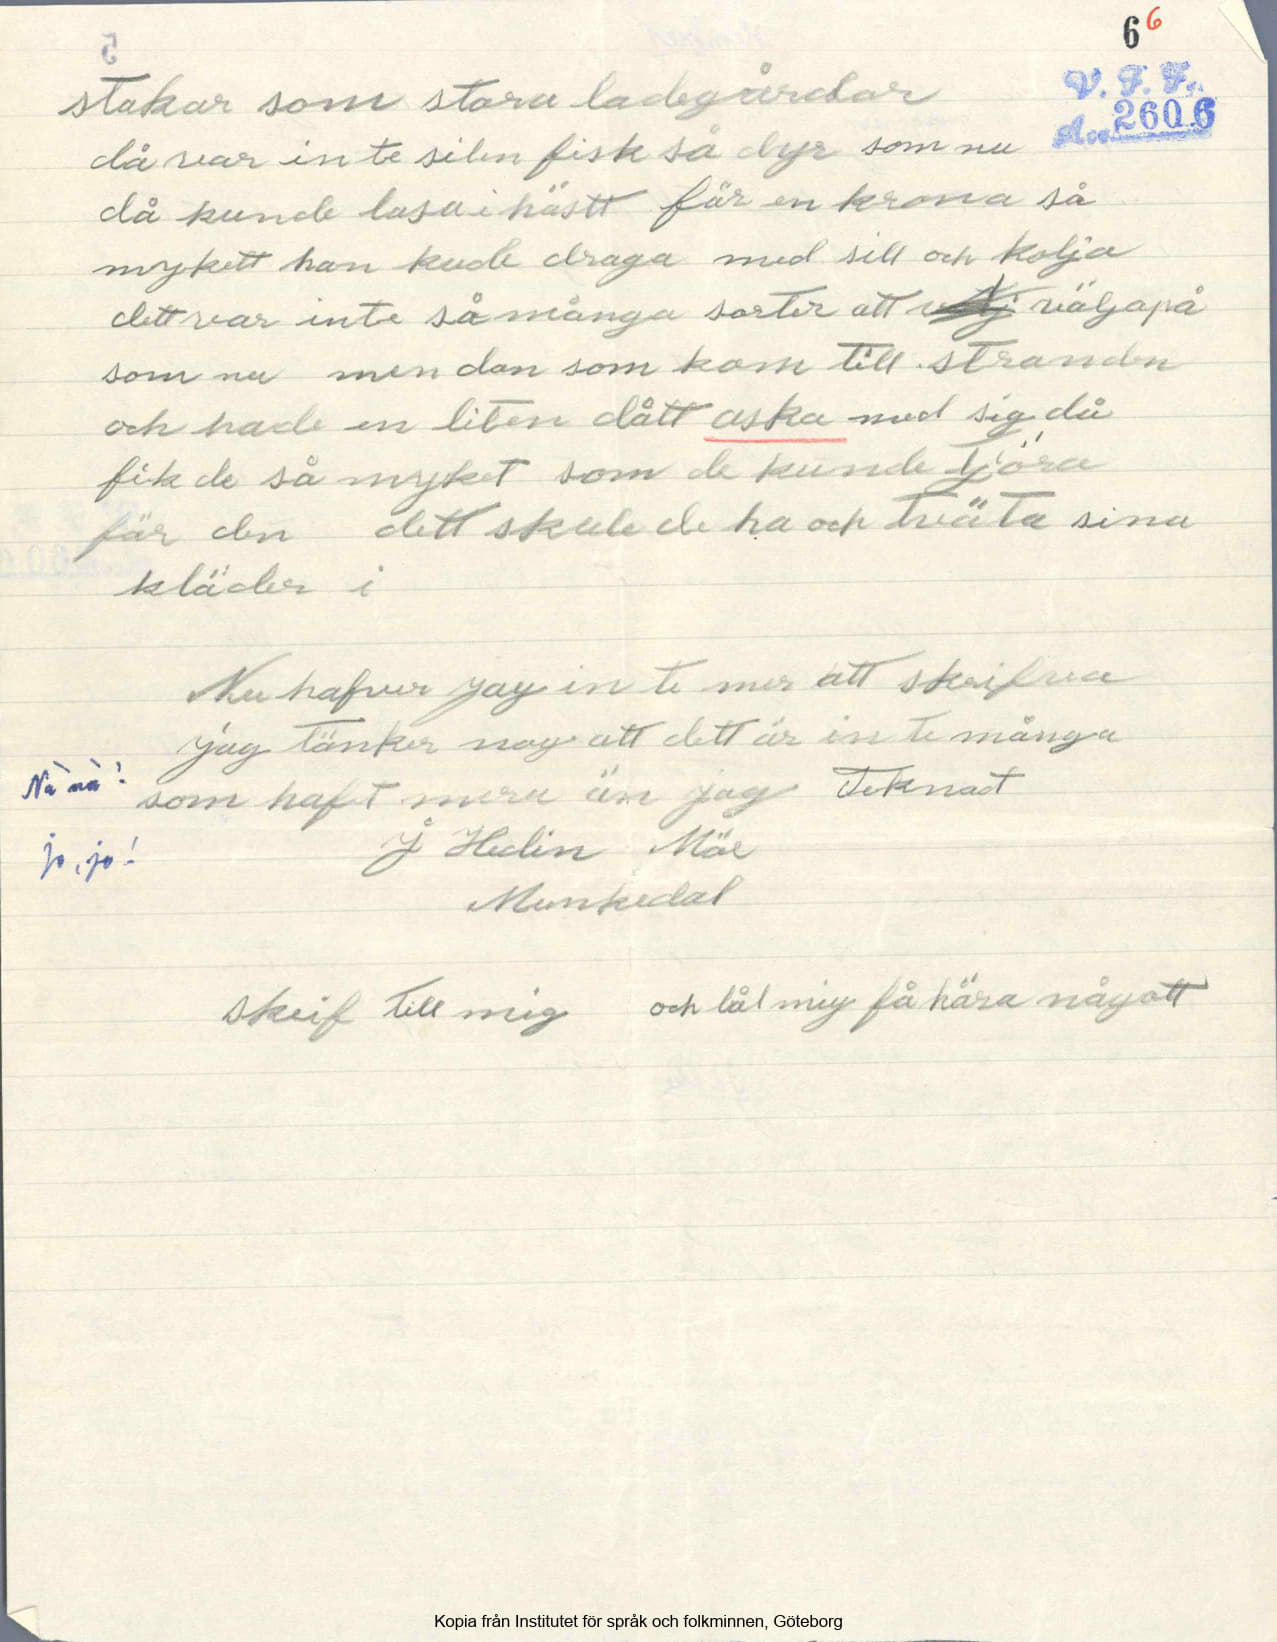 6 6
V. F. F.
Acc. 2606
stakar som stora ladegårdar
då var in te silen fisk så dyr som nu
då kunde lasa i hästt får en krona så
mykett han kude draga med sill och kolja
dett var inte så många sorter att väljapå
som nu men dan som kom till stranden
och hade en liten dått aska med sig då
fik de så myket som de kunde tjöra
får den dett skule de ha och tväta sina
kläder i
Nu hafver jag in te mer att skrifva
jag tänker nog att dett är in te många
Nä nä! som haft mera än jag Teknad
jo, jo! J Hedin Möe
Munkedal
skrif till mig och låt mig få håra någott
Kopia från Institutet för språk och folkminnen, Göteborg